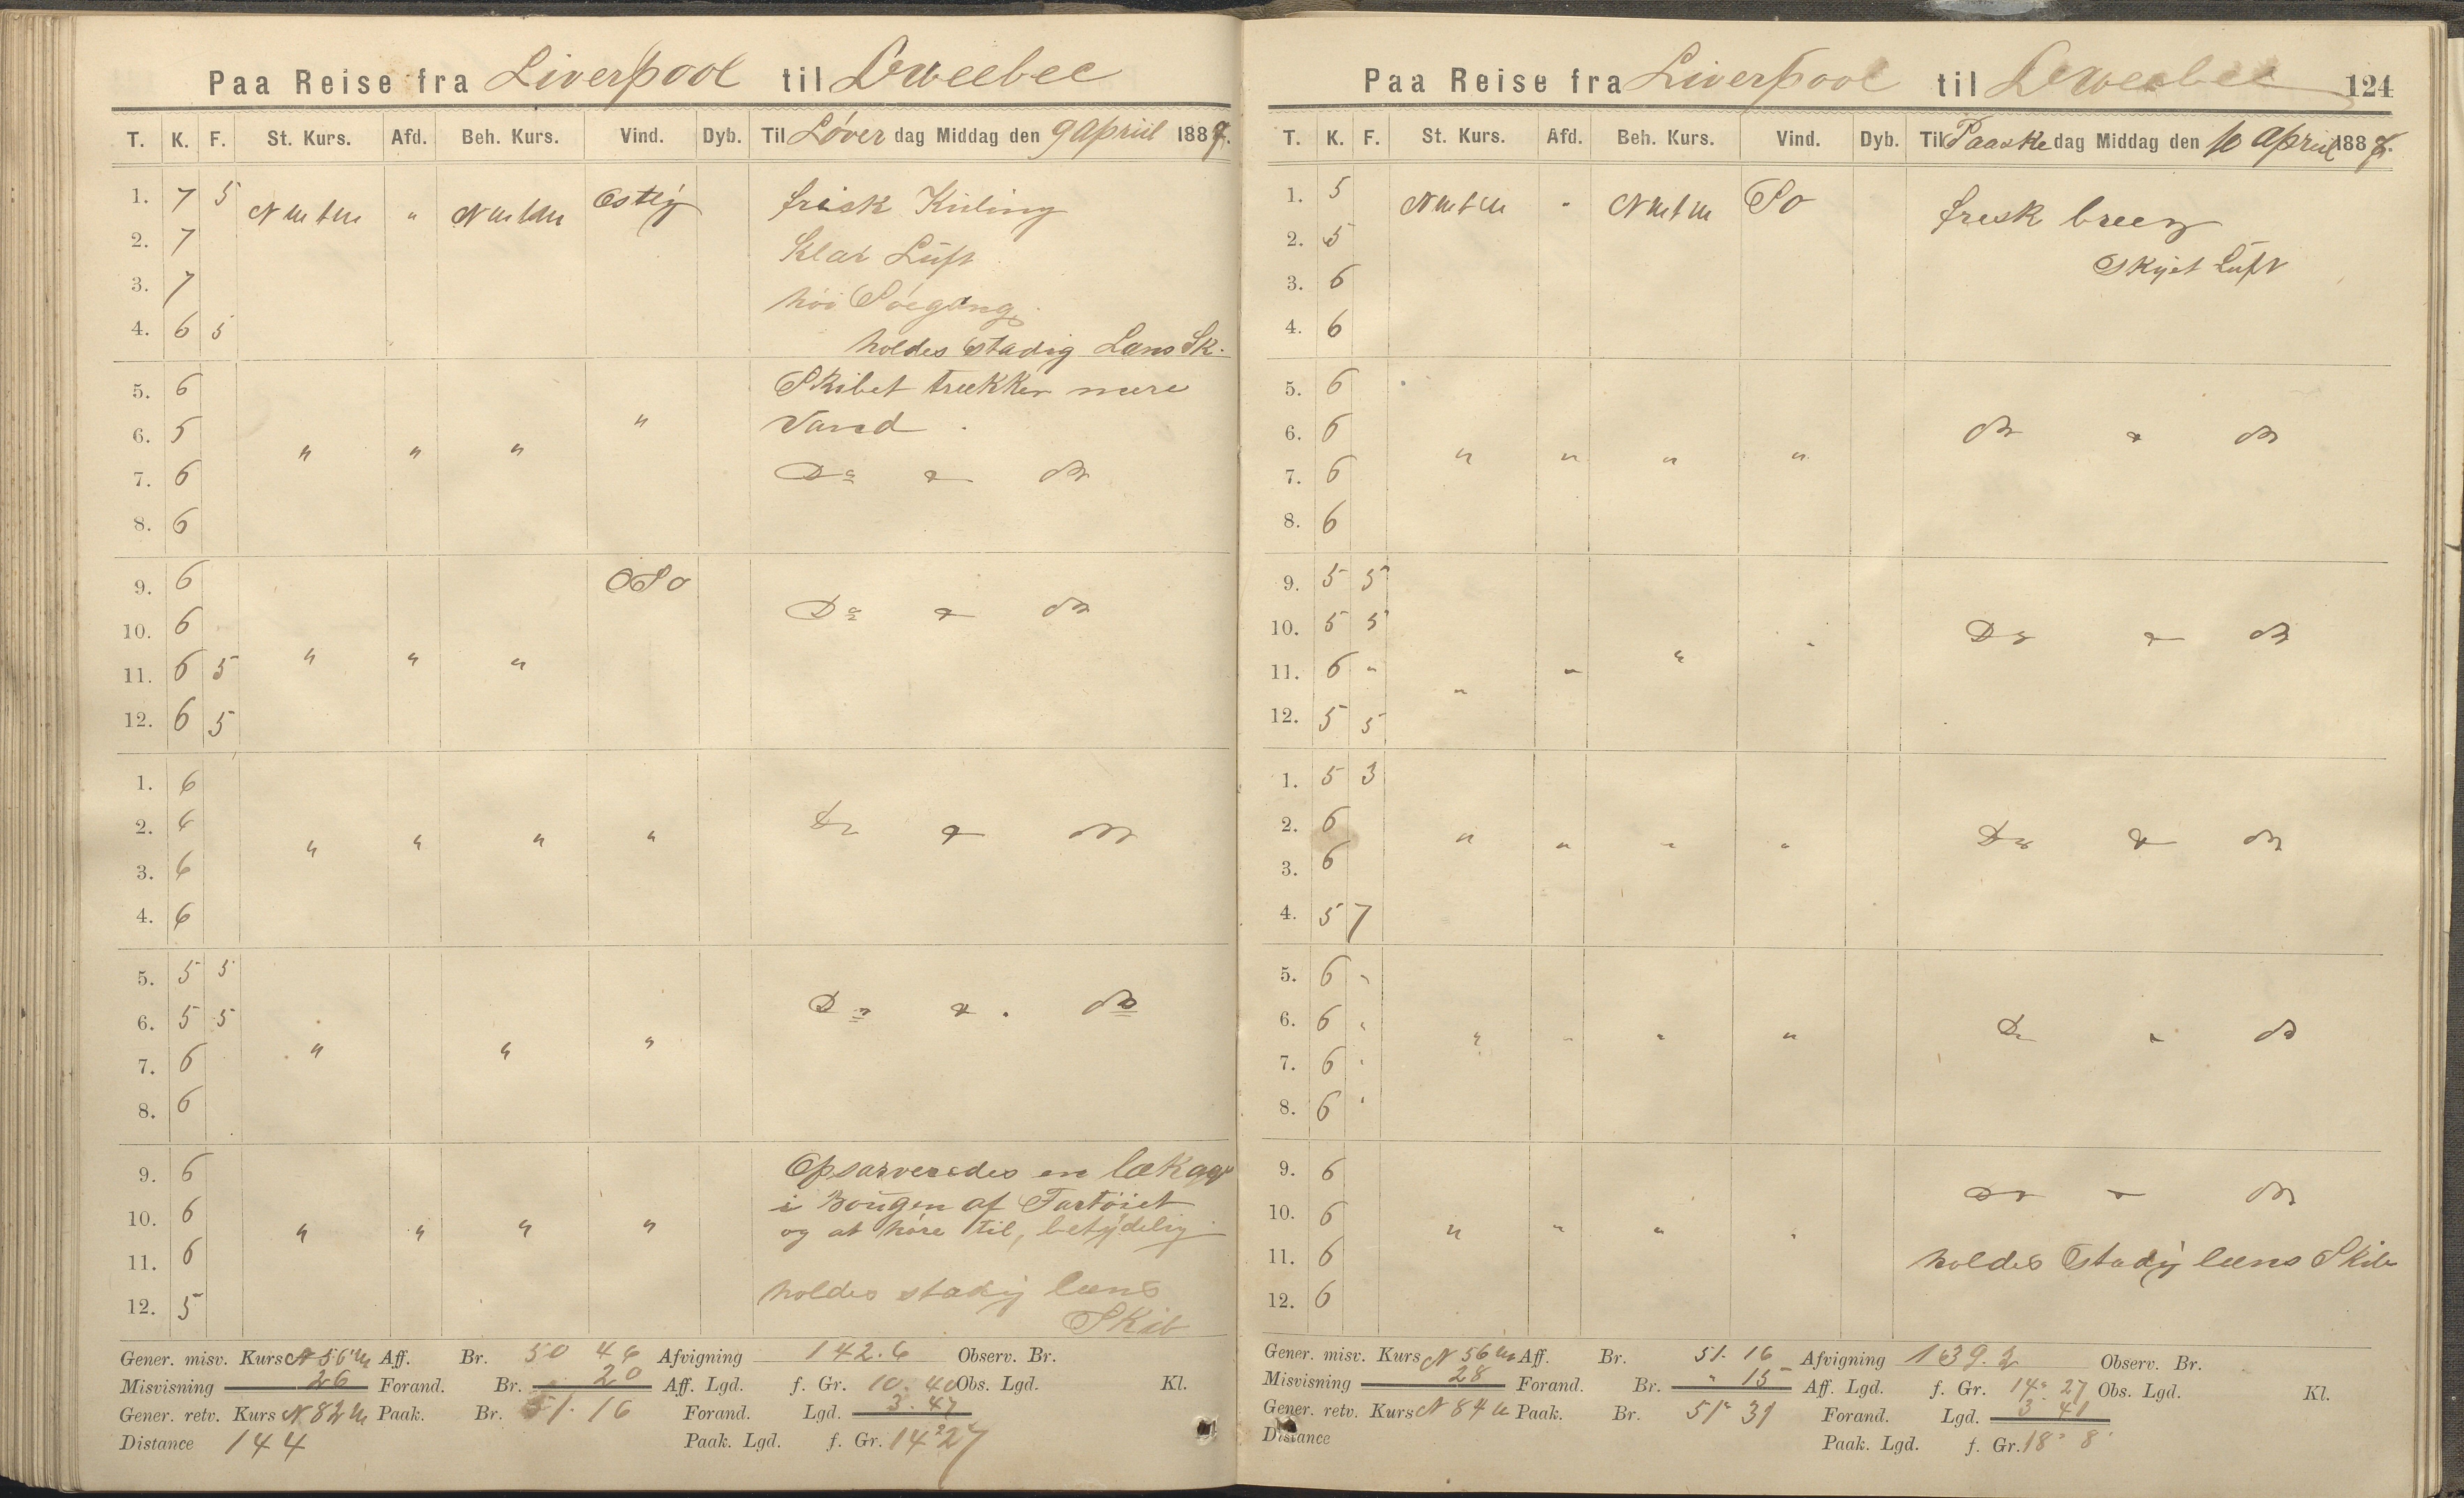 Paa Reise fra Liverpool til Qweebec
T. K. F. St. Kurs. Afd. Beh. Kurs. Vind. Dyb. Til Löver dag Middag den 9 Apriil 1887.
1. 7 5 NWtW " NWtW Östlig frisk Kuling
2. 7 Klar Luft
3. 7 höi Söegang
4. 6 5 holdes stadig Læns Sk.
5. 6 Skibet trækker mere
6. 5 " " " " Vand
7. 6 Do & do
8. 6
9. 6 OSO
10. 6 Do & do
11. 6 5 " " "
12. 6 5
1. 6
2. 6 " " " " Do & do
3. 6
4. 6
5. 5 5
6. 5 5 Do & do
7. 6 " " "
8. 6
9. 6 Opsarveredes en lækage
10. 6 " " " " i Bougen af Fartöiet
og at höre til, betydelig
11. 6
12. 5 holdes stadig læns
Skib
Gener. misv. Kurs N 56 W Aff. Br. 50 46 Afvigning 142.6 Observ. Br.
Misvisning 26 Forand. Br. 20 Aff. Lgd. f. Gr. 10. 40 Obs. Lgd. Kl.
Gener. retv. Kurs N 82 W Paak. Br. 51. 16 Forand. Lgd. 3. 47
Distance 144 Paak. Lgd. f. Gr. 14° 27
Paa Reise fra Liverpool til Qweebec 124
T. K. F. St. Kurs. Afd. Beh. Kurs. Vind. Dyb. Til Paaske dag Middag den 10 Apriil 1887.
1. 5 NWtW " NWtW SO fresk breez
2. 5 Skyet Luft
3. 6
4. 6
5. 6
6. 6 " " " " do & do
7. 6
8. 6
9. 5 5
10. 5 5 Do & do
11. 6 " " " " "
12. 5 5
1. 5 3
2. 6 " " " " Do & do
3. 6
4. 5 7
5. 6 "
6. 6 " " " " " Do & do
7. 6 "
8. 6 "
9. 6 Do & do
10. 6 " " " "
11. 6 holdes Stadig læns Skib
12. 6
Gener. misv. Kurs N 56 W Aff. Br. 51. 16 Afvigning 139.2 Observ. Br.
Misvisning 28 Forand. Br. " 15 Aff. Lgd. f. Gr. 14° 27 Obs. Lgd. Kl.
Gener. retv. Kurs N 84 W Paak. Br. 51° 31 Forand. Lgd. 3 41
Distance Paak. Lgd. f. Gr. 18° 8'